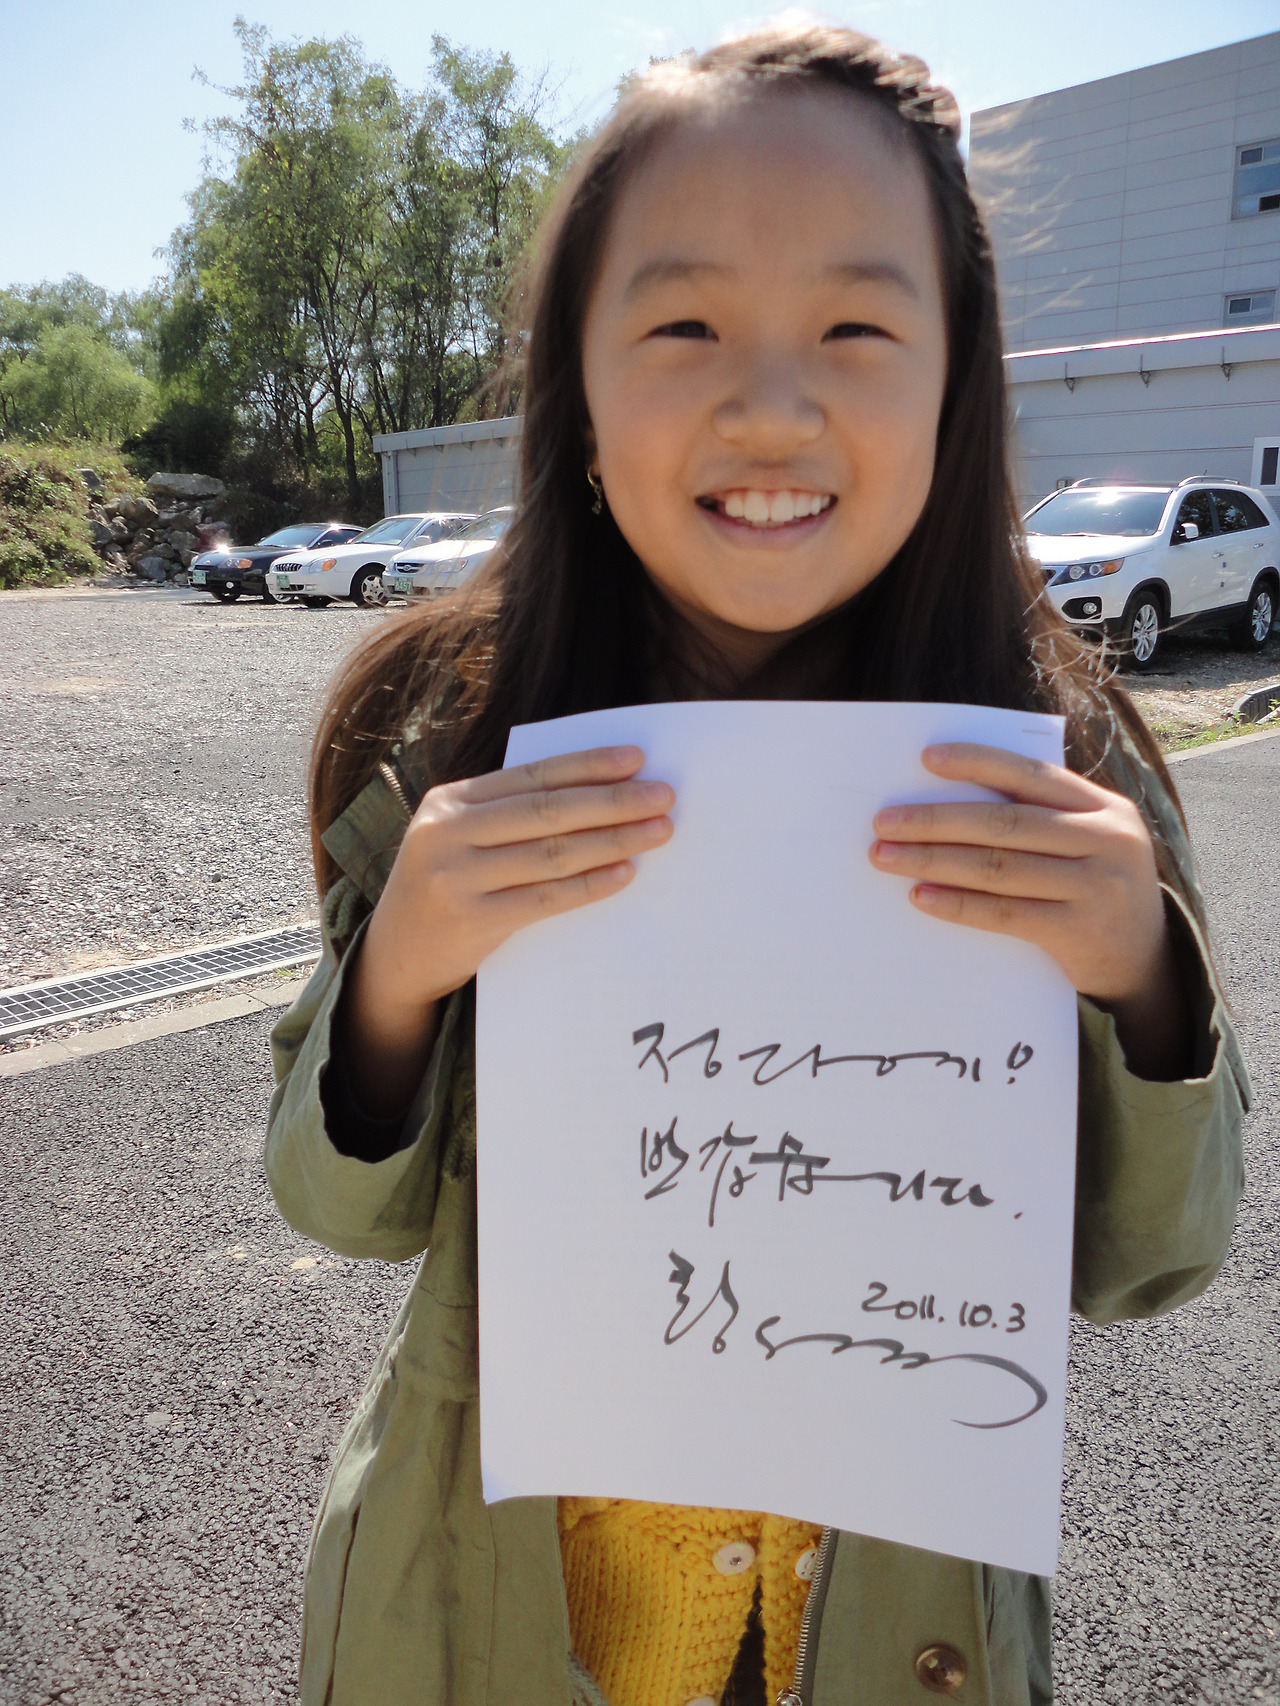 정다예!
반갑습니다.
2011.10.3